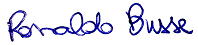 Ronaldo Busse